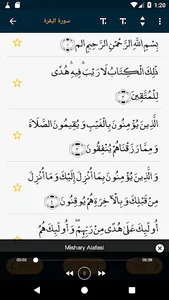 1:20
سورة البقرة
T. T.
بِسْمِ اللَّهِ الرَّحْمَٰنِ الرَّحِيمِ الم ﴿١﴾
ذَٰلِكَ الْكِتَابُ لَا رَيْبَ ۛ فِيهِ ۛ هُدًى
لِّلْمُتَّقِينَ ﴿٢﴾
الَّذِينَ يُؤْمِنُونَ بِالْغَيْبِ وَيُقِيمُونَ الصَّلَاةَ
وَمِمَّا رَزَقْنَاهُمْ يُنفِقُونَ ﴿٣﴾
وَالَّذِينَ يُؤْمِنُونَ بِمَا أُنزِلَ إِلَيْكَ وَمَا أُنزِلَ
مِن قَبْلِكَ وَبِالْآخِرَةِ هُمْ يُوقِنُونَ ﴿٤﴾
أُولَٰئِكَ عَلَىٰ هُدًى مِّن رَّبِّهِمْ ۖ وَأُولَٰئِكَ
Mishary Alafasi
00:00
06:39